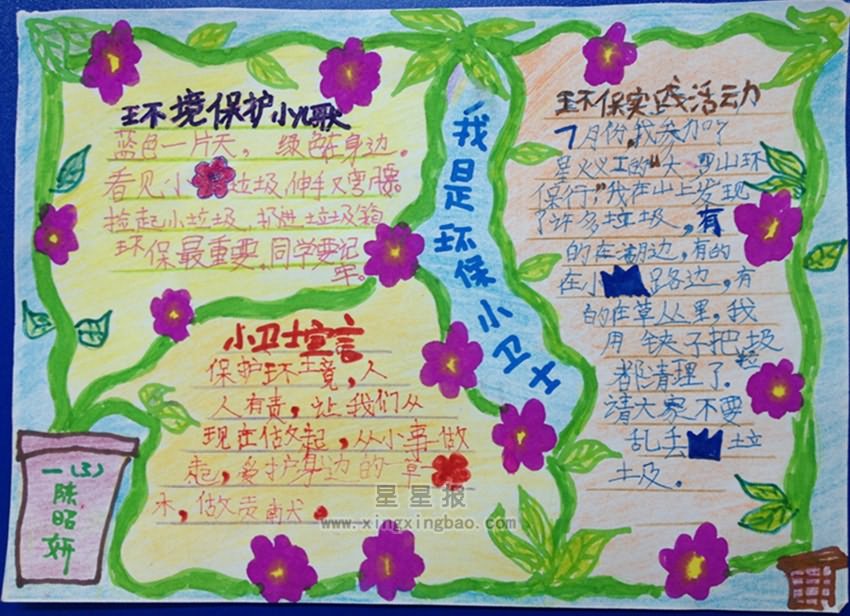 环境保护小儿歌
蓝色一片天，绿色在身边。
看见小垃圾，伸手又弯腰。
捡起小垃圾，扔进垃圾箱
环保最重要，同学要记
牢。
小卫士宣言
保护环境，人
人有责，让我们从
现在做起，从小事做
起，爱护身边的一草一
木，做贡献。
我是环保小卫士
环保实践活动
7月份，我参加了
星火义工的“大罗山环
保行，”我在山上发现
了许多垃圾，有
的在湖边，有的
在小路边，有
的在草丛里，我
用铗子把垃圾
都清理了。
请大家不要
乱丢垃
圾。
一(3)
陈昭妍
星星报
www.xingxingbao.com